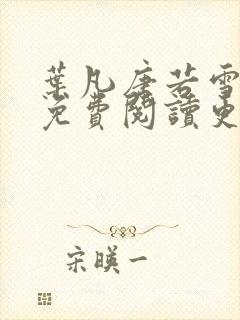 葉凡唐若雪
免費閱讀更
宋暎一